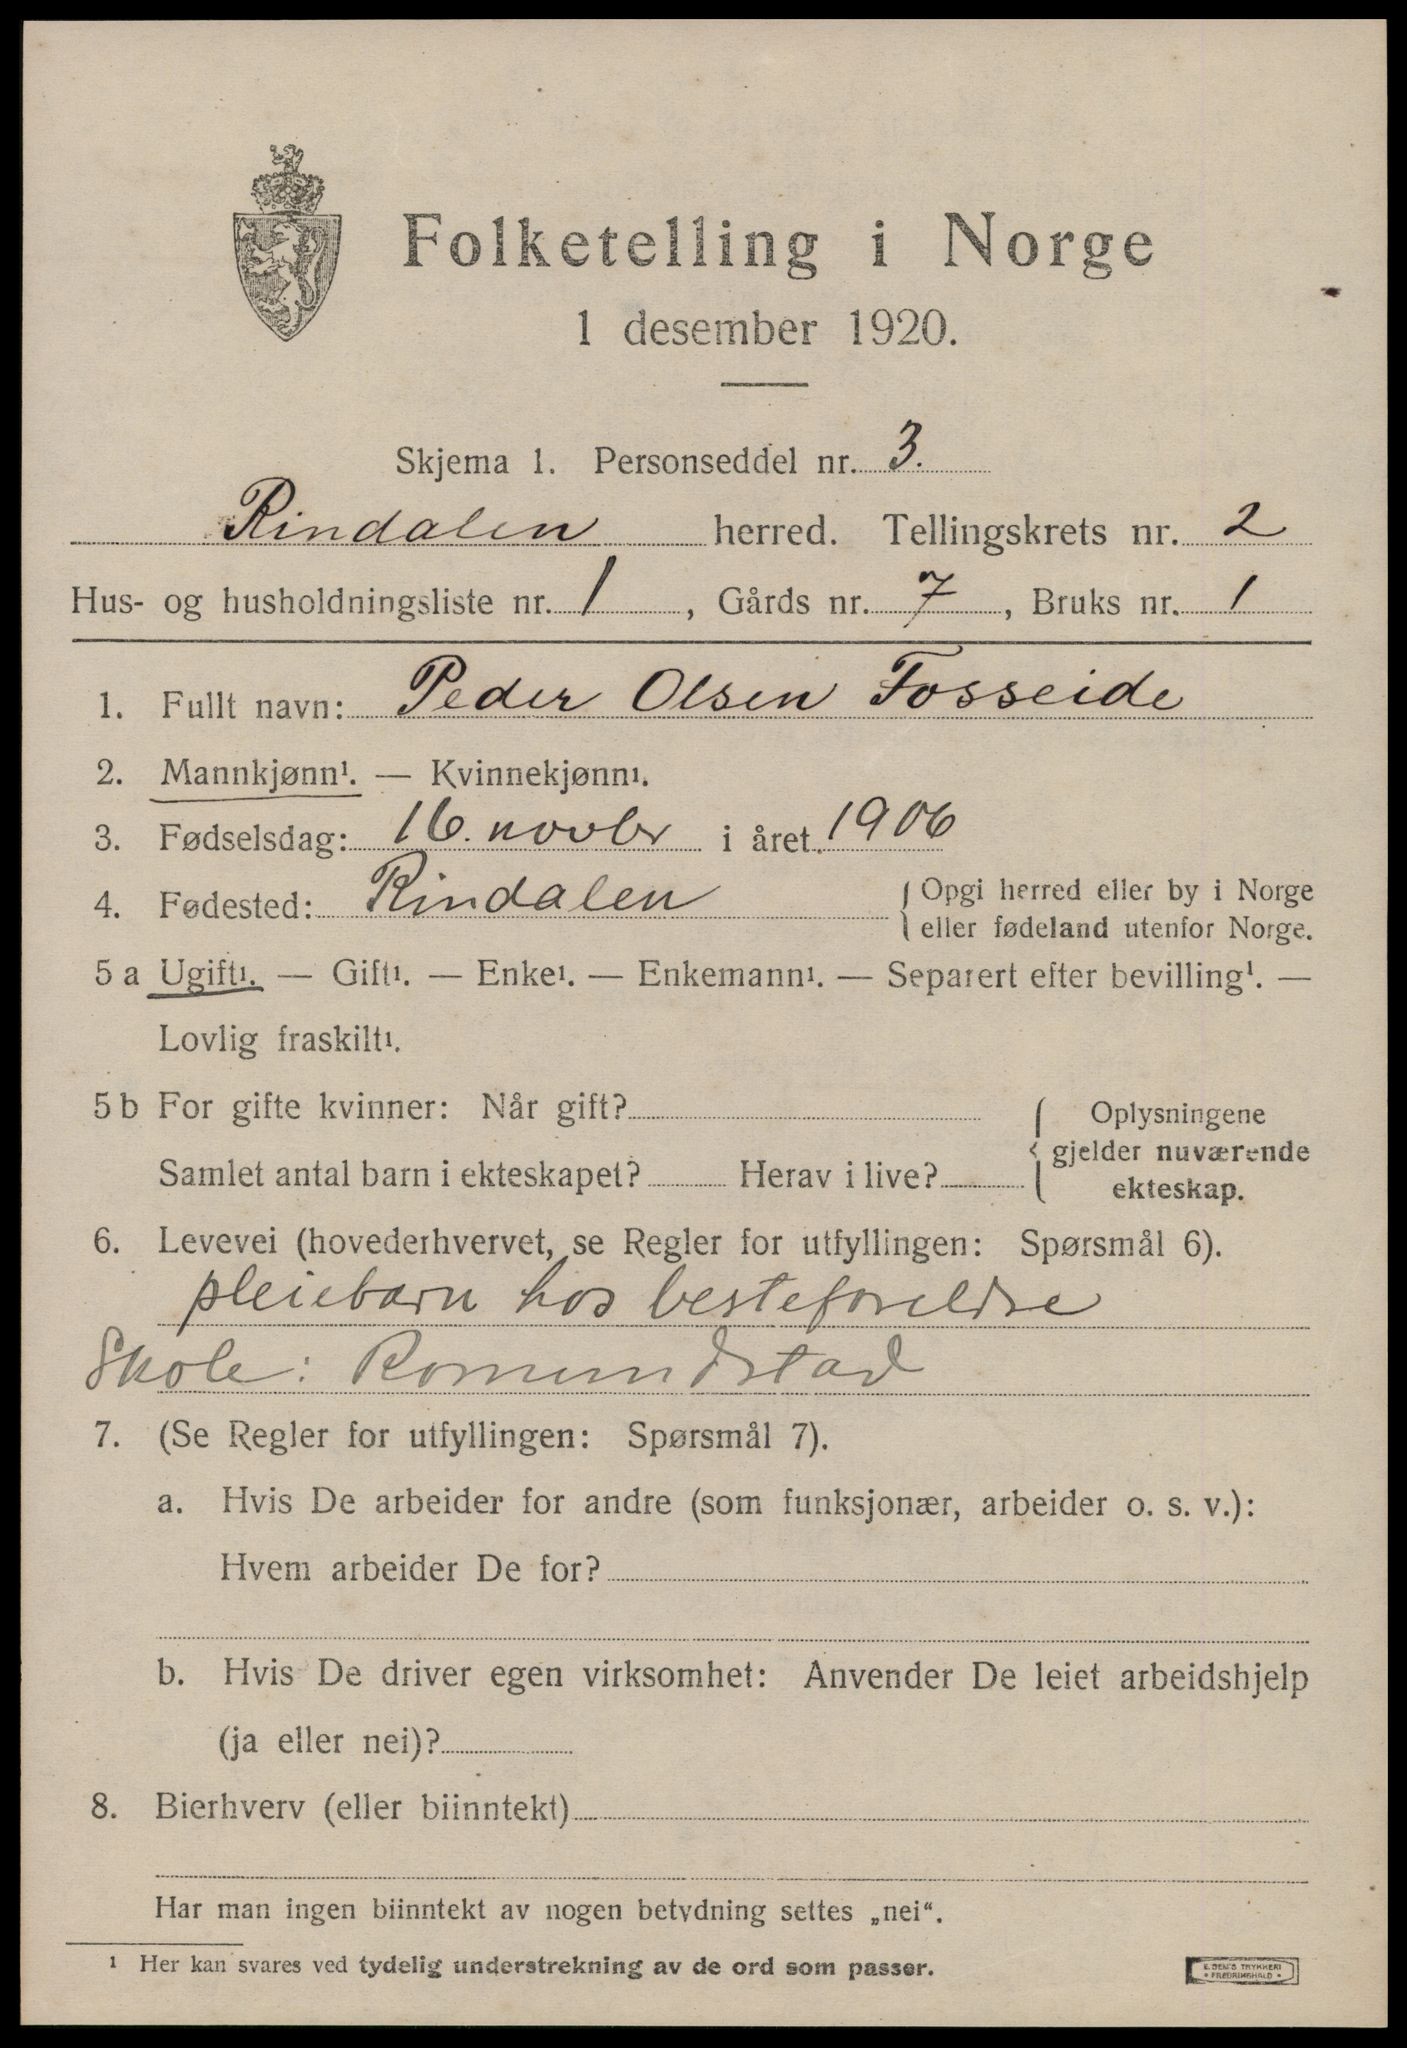 Folketelling i Norge
1 desember 1920.
Skjema 1. Personseddel nr. 3.
Rindalen herred. Tellingskrets nr. 2
Hus- og husholdningsliste nr. 1, Gårds nr. 7, Bruks nr. 1
1. Fullt navn: Peder Olsen Fosseide
2. Mannkjønn¹. — Kvinnekjønn¹.
3. Fødselsdag: 16. novbr i året 1906
4. Fødested: Rindalen { Opgi herred eller by i Norge
eller fødeland utenfor Norge.
5 a Ugift¹. — Gift¹. — Enke¹. — Enkemann¹. — Separert efter bevilling¹. —
Lovlig fraskilt¹.
5 b For gifte kvinner: Når gift? { Oplysningene
gjelder nuværende
ekteskap.
Samlet antal barn i ekteskapet? Herav i live?
6. Levevei (hovederhvervet, se Regler for utfyllingen: Spørsmål 6).
pleiebarn hos besteforeldre
Skole: Romundstad
7. (Se Regler for utfyllingen: Spørsmål 7).
a. Hvis De arbeider for andre (som funksjonær, arbeider o. s. v.):
Hvem arbeider De for?
b. Hvis De driver egen virksomhet: Anvender De leiet arbeidshjelp
(ja eller nei)?
8. Bierhverv (eller biinntekt)
Har man ingen biinntekt av nogen betydning settes „nei“.
¹ Her kan svares ved tydelig understrekning av de ord som passer.
E. SEM'S TRYKKERI
• FREDRIKSHALD •